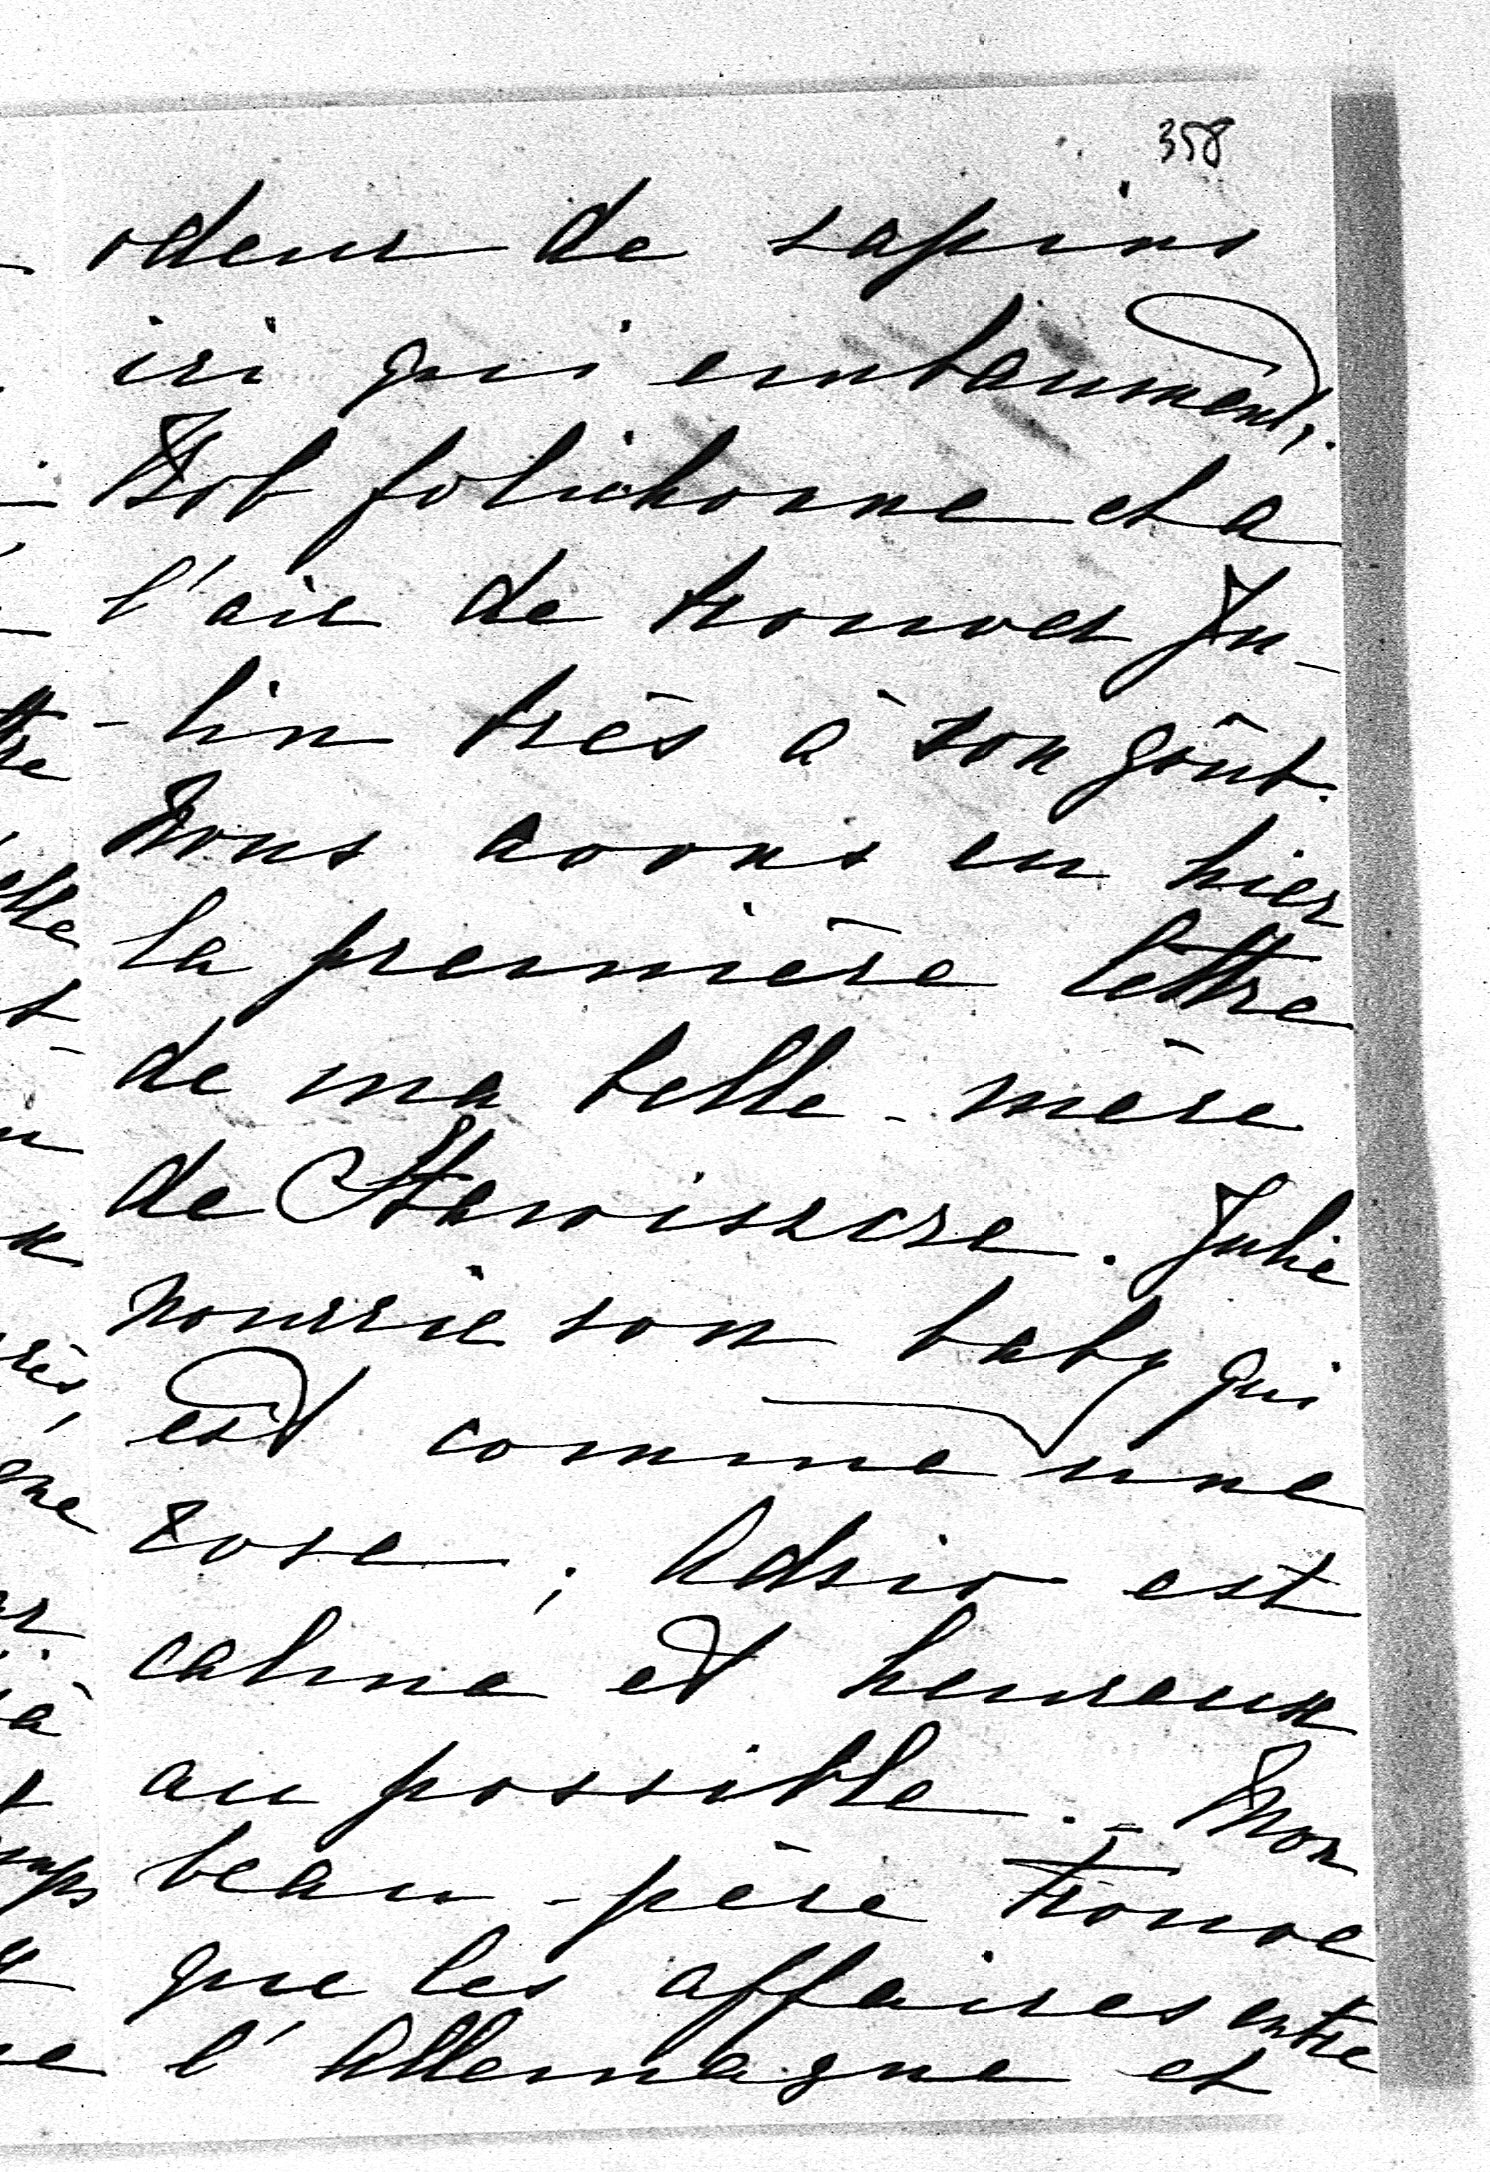 358
odeur de sapins
ici qui embaument.
Bob folichonne et a
l'air de trouver Ju-
-lin très à son goût.
Nous avons eu hier
la première lettre
de ma belle-mère
de Stawiszcze. Julie
nourrit son baby qui
est comme une
rose ; Adzio est
calme et heureux
au possible. - Mon
beau-père trouve
que les affaires entre
l'Allemagne et